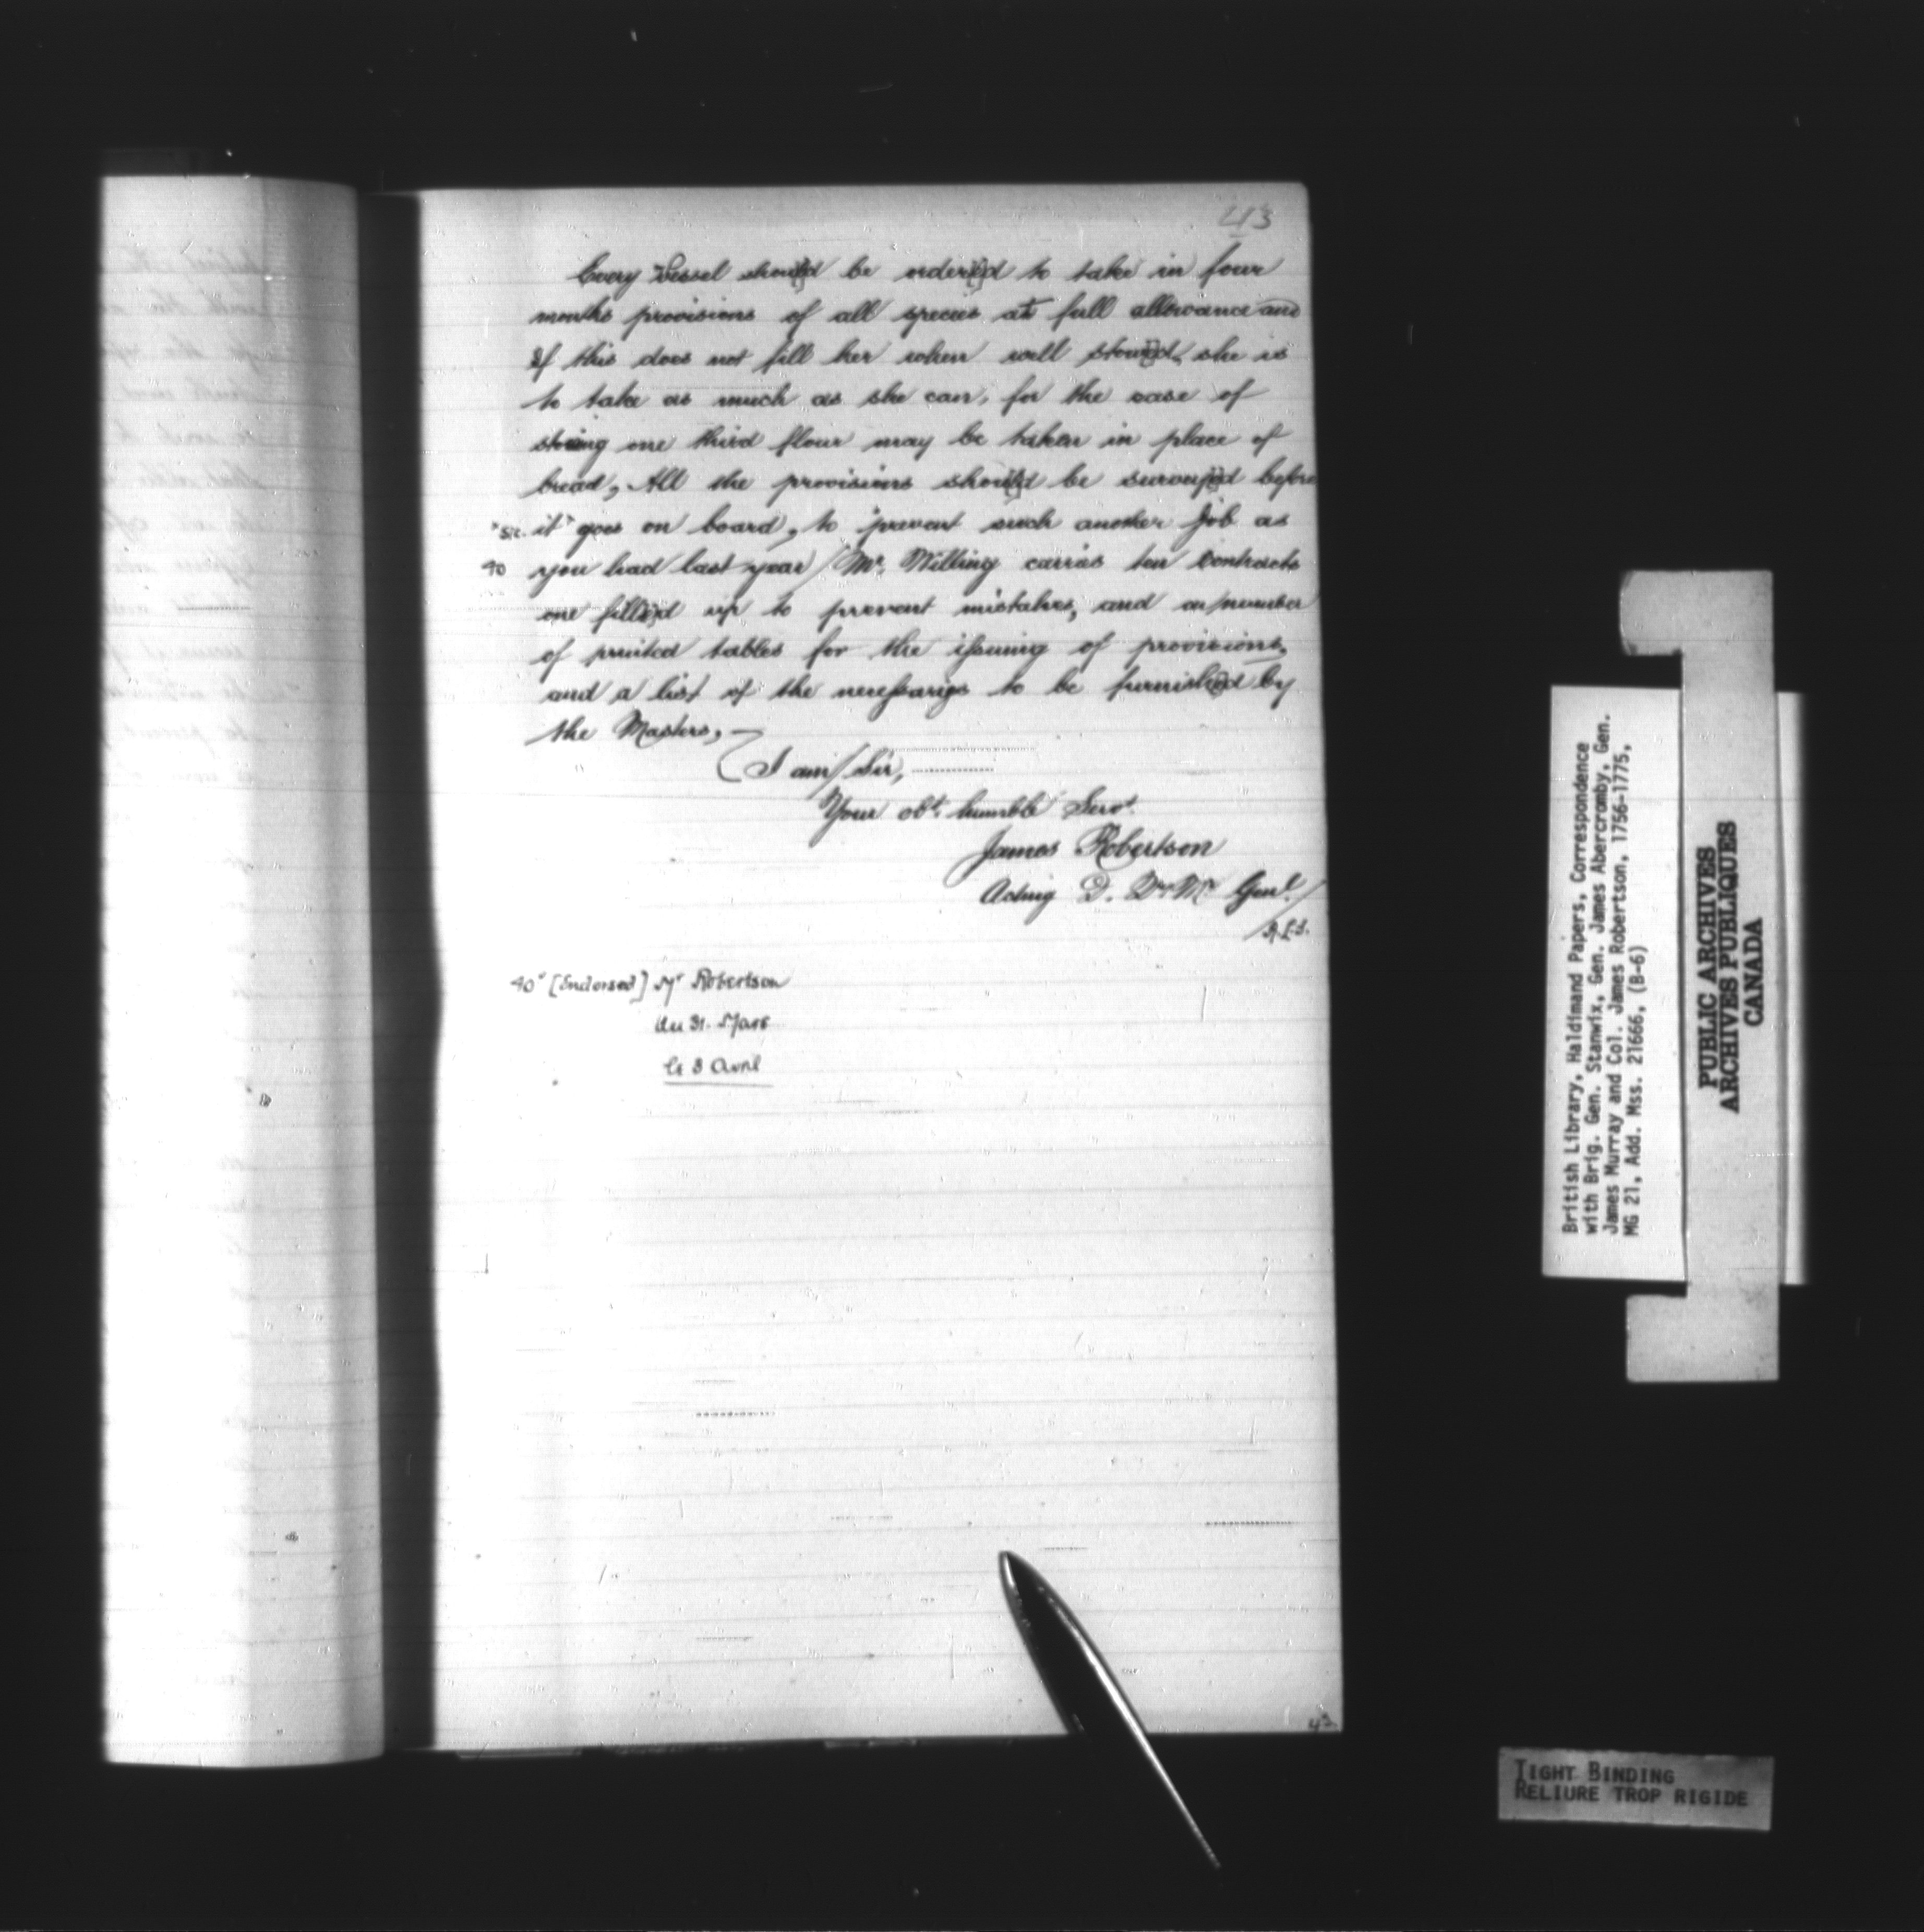 43
Every Vessel should be ordered to take in four
months provisions of all species at full allowance and
if this does not fill her when well stowed, she is
to take as much as she can, for the ease of
stowing one third flour may be taken in place of
bread, All the provisions should be surveyed before
"sic. it" goes on board, to prevent such another Job as
40 you had last year / Mr. Willing carries ten Contracts
one filled up to prevent mistakes, and a number
of printed tables for the issuing of provisions,
and a list of the necessarys to be furnished by
the Masters, —
I am / Sir,
Your obt. humble Servt.
James Robertson
Acting D. Qr Mr Genl.
40v [Endorsed] Mr Robertson
du 31. Mars
le 8 Avril
43.
British Library, Haldimand Papers, Correspondence
with Brig. Gen. Stanwix, Gen. James Abercromby, Gen.
James Murray and Col. James Robertson, 1756-1775,
MG 21, Add. Mss. 21666, (B-6)
PUBLIC ARCHIVES
ARCHIVES PUBLIQUES
CANADA
TIGHT BINDING
RELIURE TROP RIGIDE